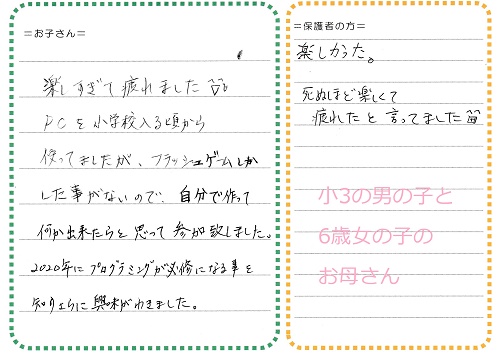 =お子さん=
楽しすぎて疲れました
PCを小学校入る頃から
使ってましたが、フラッシュゲームしか
した事がないので、自分で作って
何か出来たらと思って参加致しました。
2020年にプログラミングが必修になる事を
知りさらに興味がわきました。
=保護者の方=
楽しかった。
死ぬほど楽しくて
疲れたと言ってました
小3の男の子と
6歳女の子の
お母さん